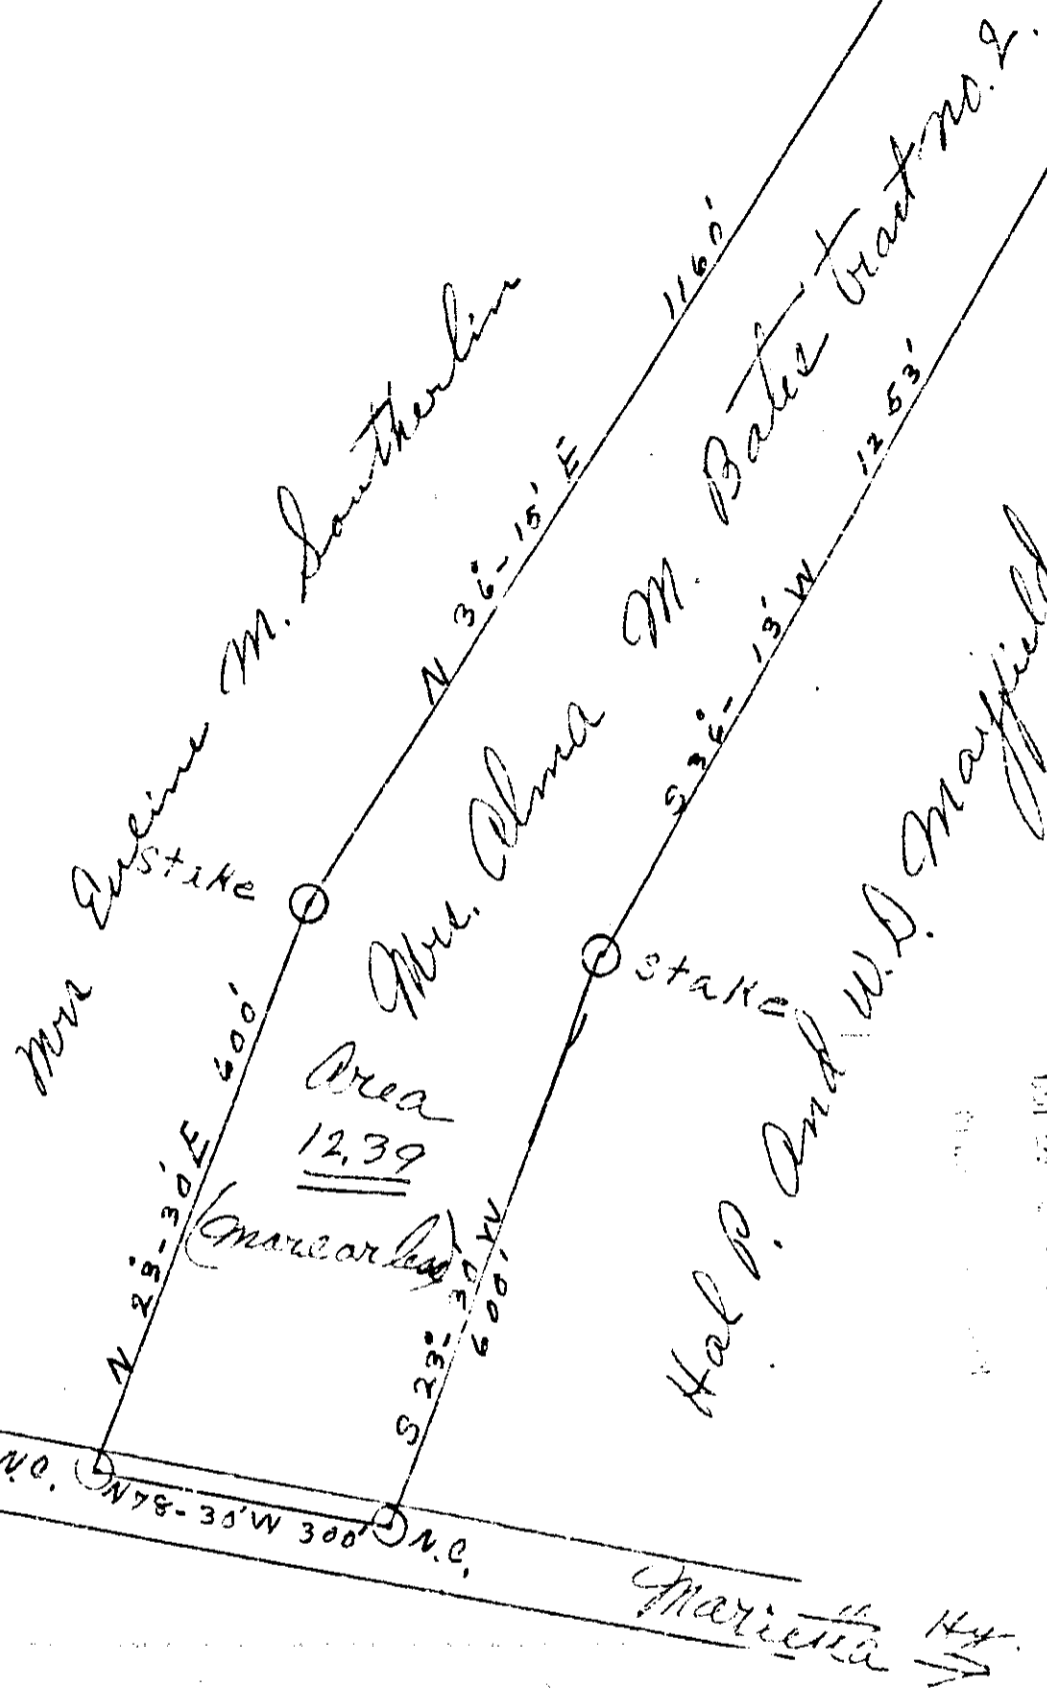 Mrs Eveline M. Southerlin
N 36°-15' E 1160'
Mrs. Alma M. Bates tract no. 2.
S 36°-13' W 1253'
Hal P. And W.D. Mayfield
Stake
Stake
N 23°-30' E 600'
Area
12.39
(more or less)
S 23°-30' W
600'
N.C.
N78-30'W 300'
N.C.
Marietta Hy.